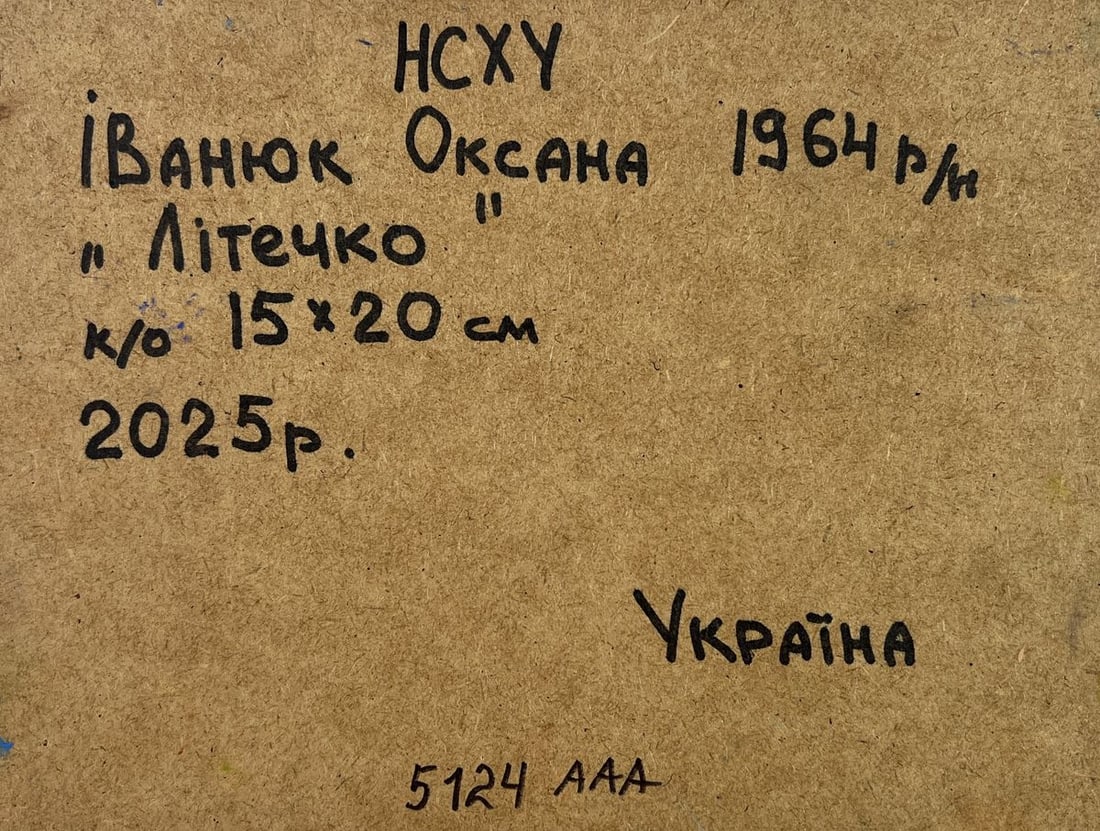 НСХУ
Іванюк Оксана 1964 р/н
„Літечко"
к/о 15×20 см
2025р.
Україна
5124 ААА